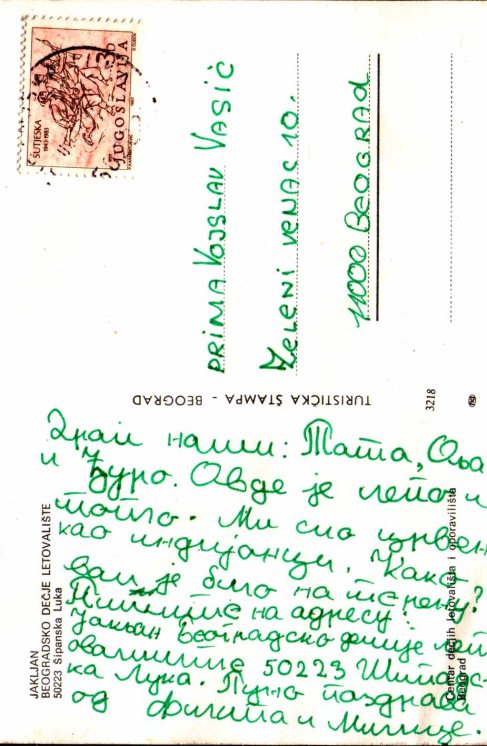 ŠUTJESKA
1943-1983
JUGOSLAVIJA
PRIMA VOJSLAV VASIĆ
ZELENI VENAC 10.
11000 BEOGRAD
TURISTIČKA ŠTAMPA - BEOGRAD
3218
JAKLJAN
BEOGRADSKO DEČJE LETOVALIŠTE
50223 Šipanska Luka
Centar dečjih letovališta i oporavilišta
Beograd
Драги наши: Тата, Оља
и Ђуро. Овде је лепо и
топло. Ми смо црвен
као индијанци. Како
вам је било на терену?
Пишите на адресу:
Јакљан Београдско дечије лет
овалиште 50223 Шипанс
ка Лука. Пуно поздрава
од Филипа и Милице.